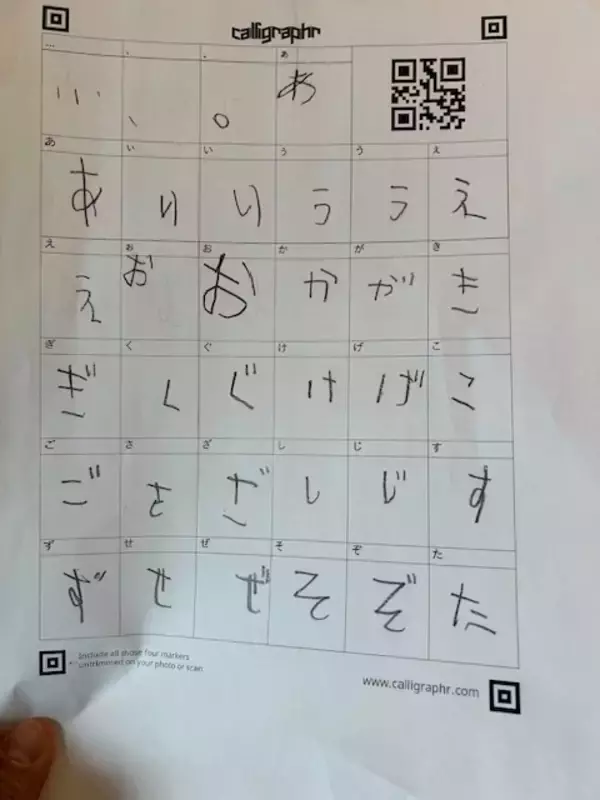 calligraphr
… 、 。 ぁ
… 、 。 ぁ
あ ぃ い ぅ う ぇ
あ ぃ い ぅ う ぇ
え ぉ お か が き
え ぉ お か が き
ぎ く ぐ け げ こ
ぎ く ぐ け げ こ
ご さ ざ し じ す
ご さ ざ し じ す
ず せ ぜ そ ぞ た
ず せ ぜ そ ぞ た
Include all above four markers
untrimmed on your photo or scan
www.calligraphr.com